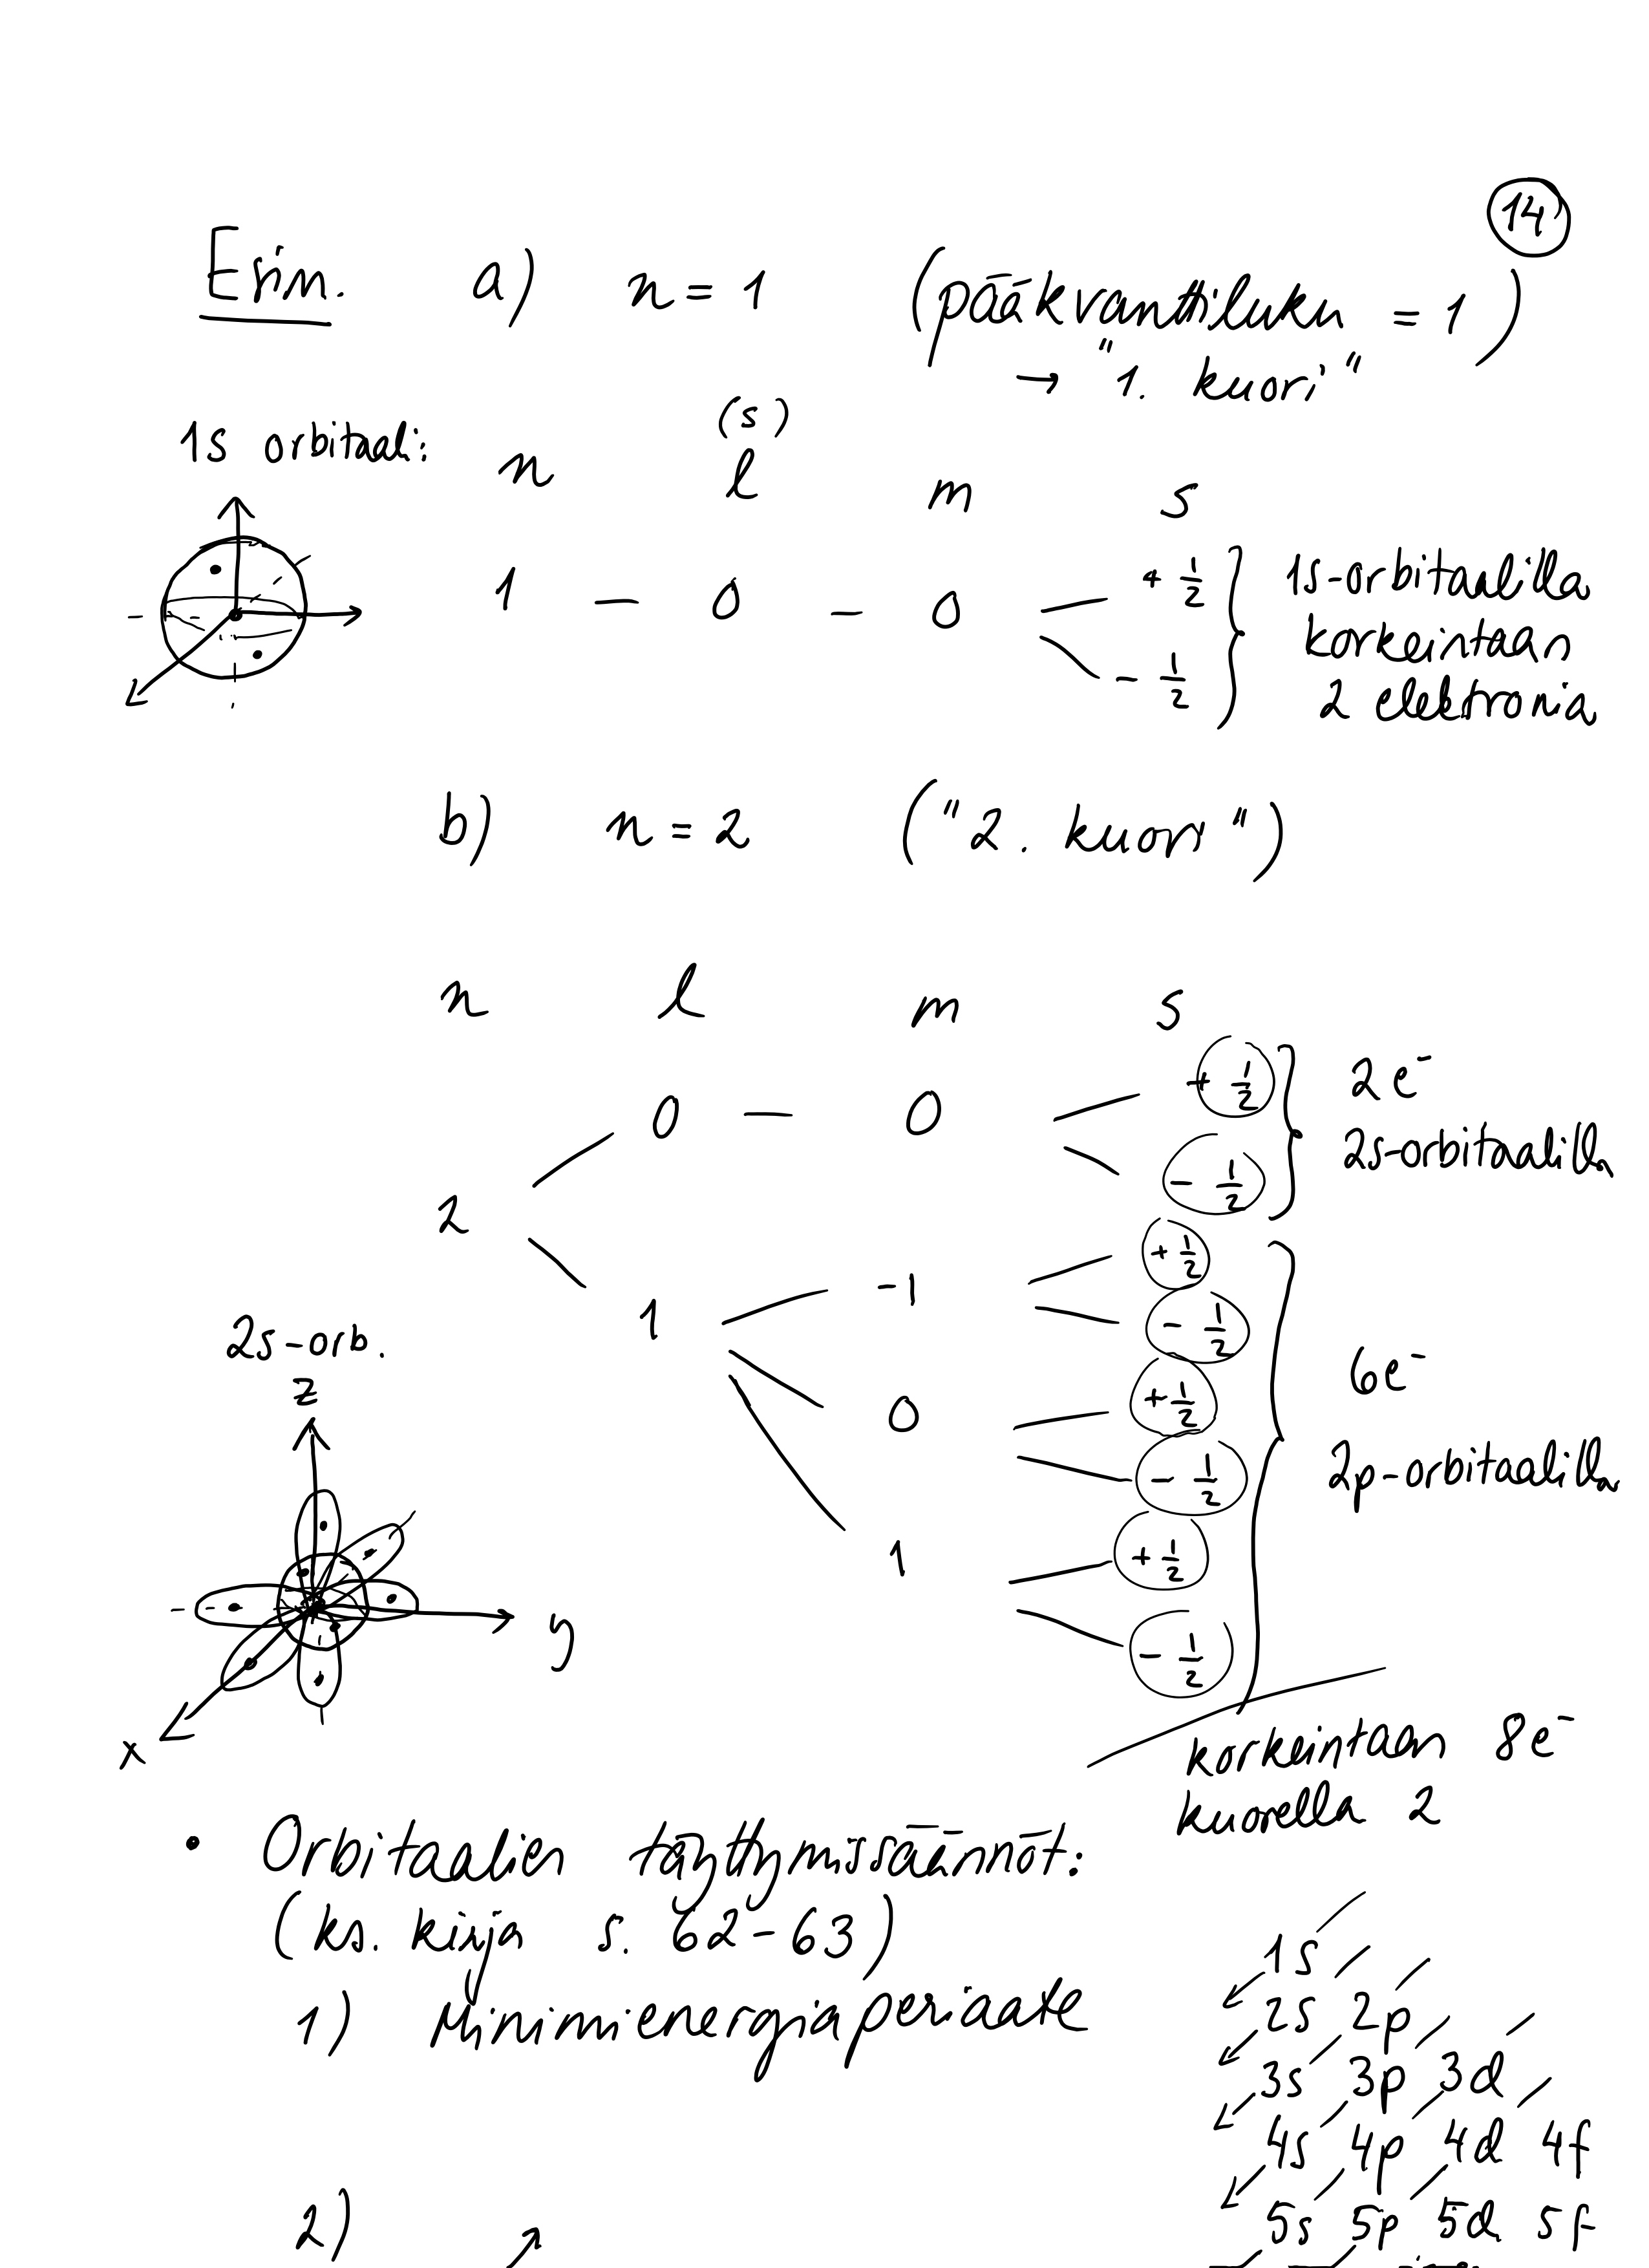 14
Esim. a) n = 1 (pääkvanttiluku = 1)
→ "1. kuori"
1s orbitaali:
(s)
n l m s
1 – 0 – 0 + 1/2
- 1/2
1s-orbitaalilla
korkeintaan
2 elektronia
b) n = 2 ("2. kuori")
n l m s
0 – 0 + 1/2
- 1/2
2 e⁻
2s-orbitaalilla
2
1 -1 + 1/2
- 1/2
0 + 1/2
- 1/2
1 + 1/2
- 1/2
6e⁻
2p-orbitaalilla
2s-orb.
z
y
x
korkeintaan 8e⁻
kuorella 2
• Orbitaalien täyttymissäännöt:
(ks. kirja s. 62-63)
1) Minimienergiaperiaate
1s
2s 2p
3s 3p 3d
4s 4p 4d 4f
5s 5p 5d 5f
2)